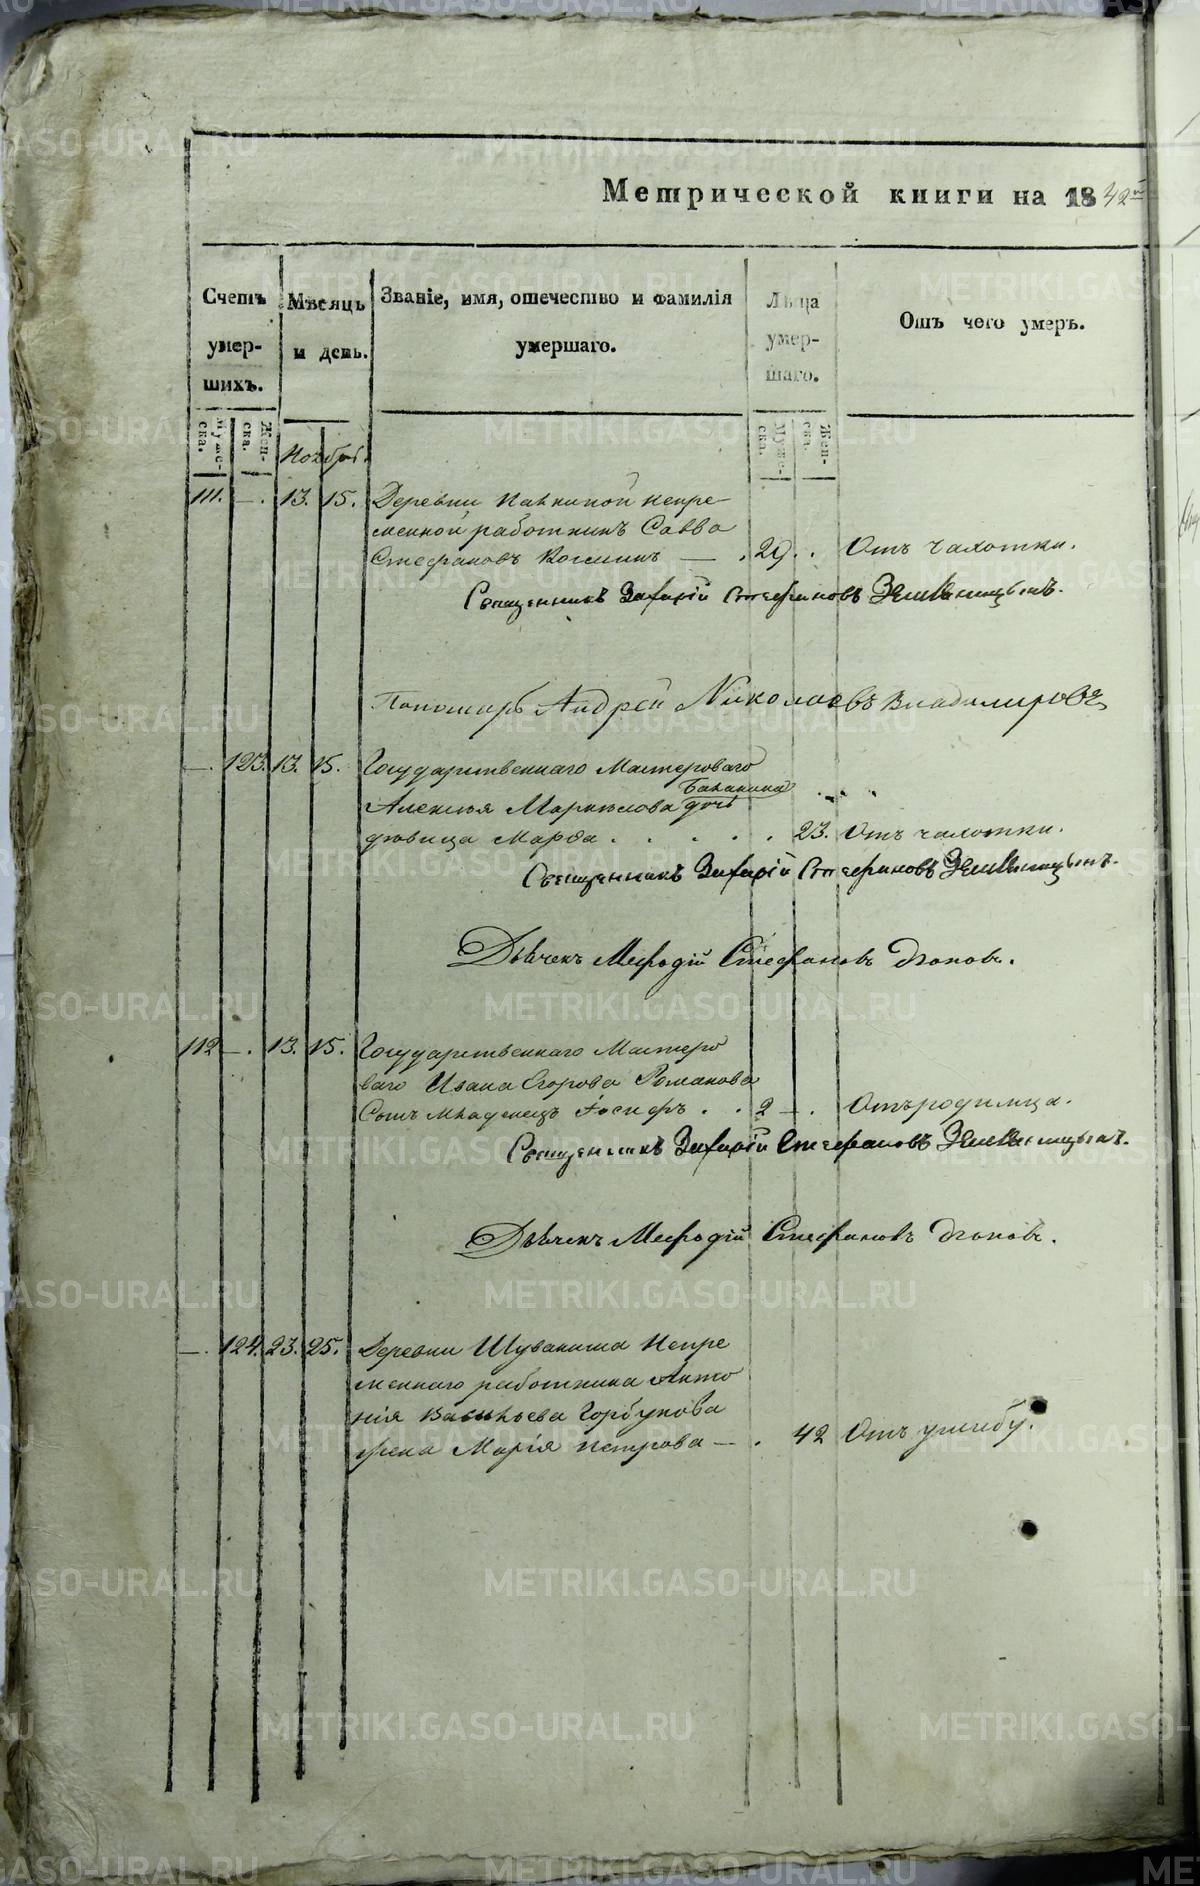 Метрической книги на 1842
Счетъ умер-шихъ.
Муже-ска.
Жен-ска.
Мѣсяцъ и день.
Званіе, имя, отечество и фамилія умершаго.
Лѣта умер-шаго.
Муже-ска.
Жен-ска.
Отъ чего умеръ.
Ноябрь.
111. — . 13. 15. Деревни Паткиной непре-
менной работникъ Савва
Стефановъ — . 29. . Отъ чахотки.
Священникъ Захарій Стефановъ Земляницынъ.
Пономарь Андрей Николаевъ Владимировъ
— . 123. 13. 15. Государственнаго Мастероваго
Бабакина
Алексѣя Маркелова дочь
дѣвица Марфа . . . . . 23. Отъ чахотки.
Священникъ Захарій Стефановъ Земляницынъ.
Дьячекъ Мефодій Стефановъ Попов.
112 — . 13. 15. Государственнаго Мастеро
ваго Ивана Егорова Романова
Сынъ младенецъ Іосифъ . . 2 — . Отъ родимца.
Священникъ Захарій Стефановъ Земляницынъ.
Дьячекъ Мефодій Стефановъ Попов.
— . 124. 23. 25. Деревни Шувакиша Непре
меннаго работника Анто
нія Васильева Горбунова
жена Марія Петрова — . 42 Отъ ушибу.